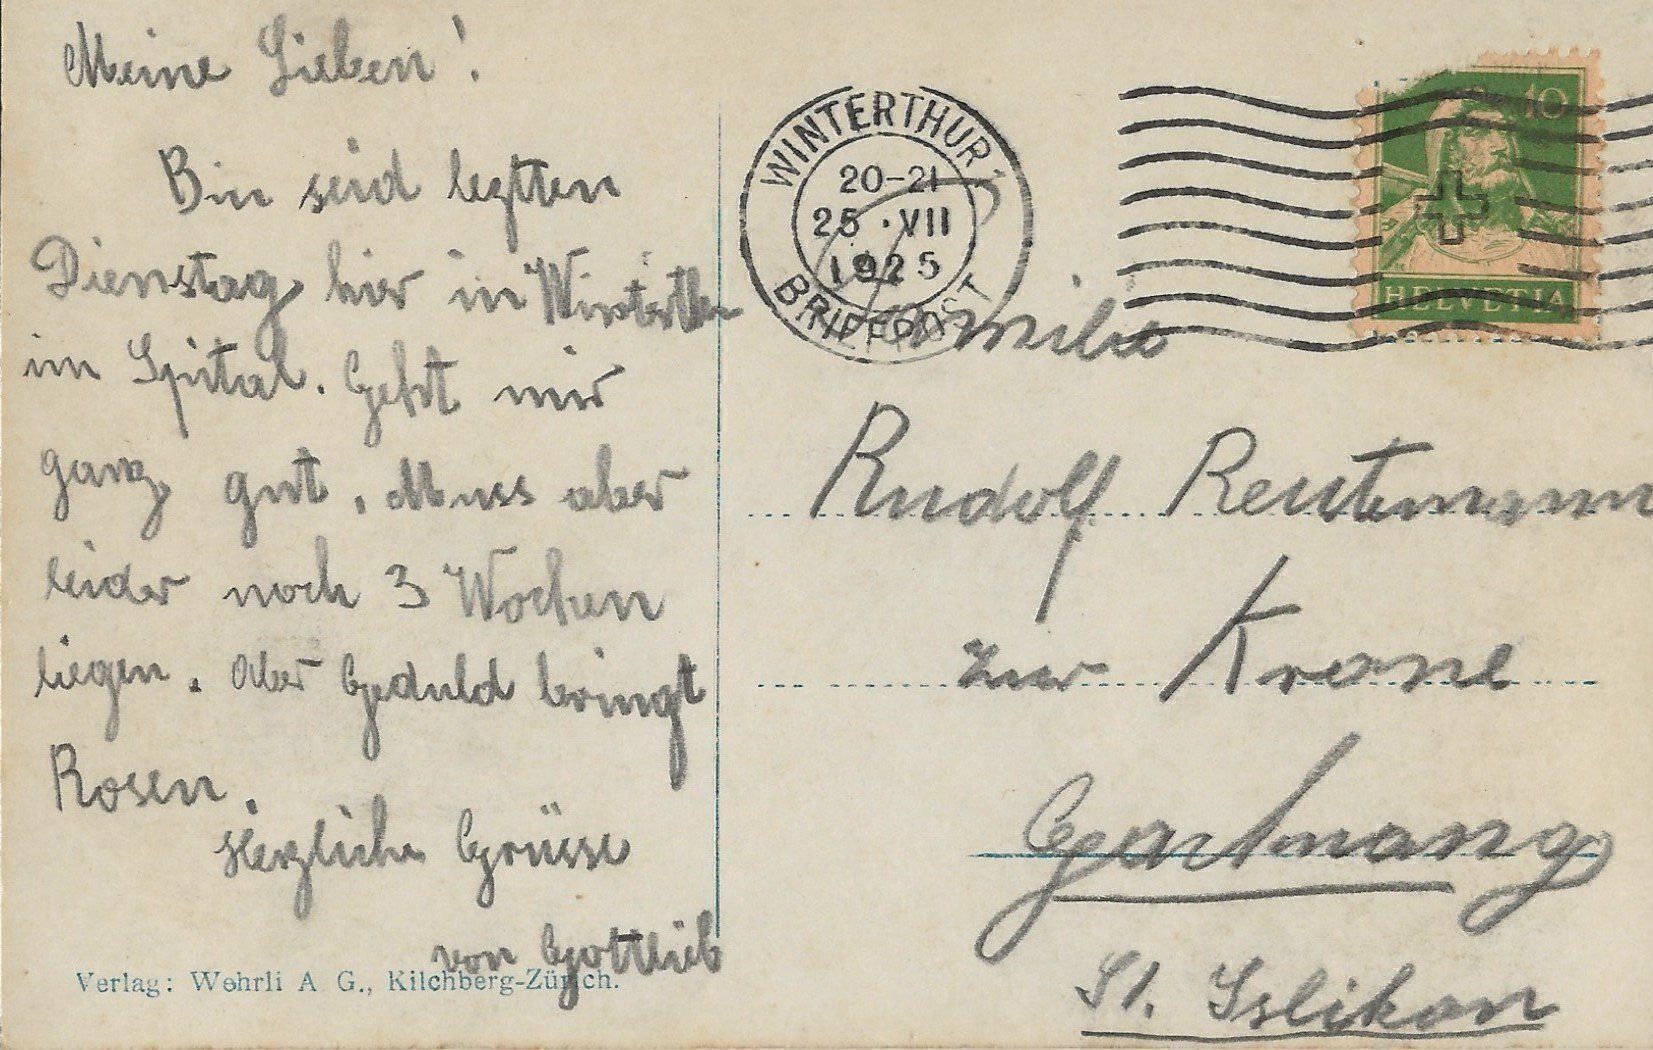 Meine Lieben!
Bin seid leztten
Dienstag hier in Winterthur
im Spital. Geht mir
ganz gut, Muss aber
leider noch 3 Wochen
liegen. Aber Geduld bringt
Rosen.
Herzliche Grüsse
von Gottlieb
Verlag: Wehrli A G., Kilchberg-Zürich.
WINTERTHUR 1
20-21
25.VII
1925
BRIEFPOST
10
HELVETIA
Familie
Rudolf Reutemann
zur Krone
Gachnang
St. Islikon